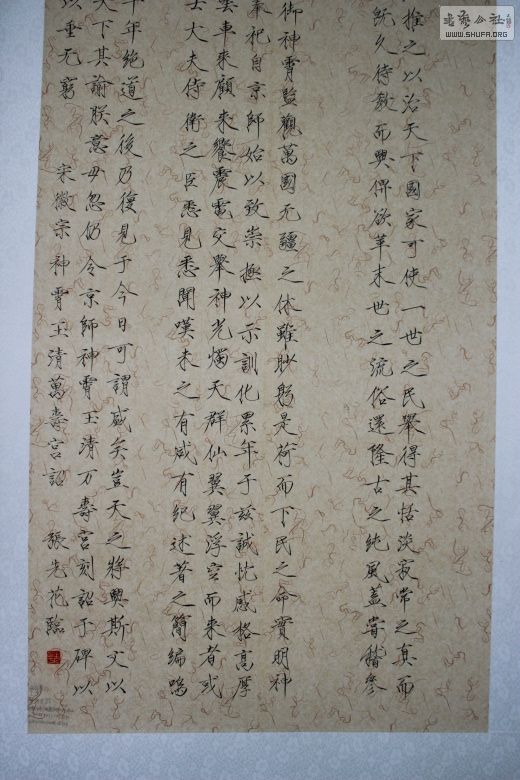 捨之以治天下國家可使一世之民舉得其恬淡寂常之真而
久待教而興俾欲革末世之流俗還隆古之純風盖嘗稽參
御神霄監觀萬國无疆之休雖眇躬是荷而下民之命實明神
奉祀自京師始以致崇極以示訓化累年于兹誠忱感格高厚
雲車來顧來饗震電交舉神光燭天群仙翼翼浮空而來者或
士大夫侍衛之臣悉見悉聞嘆未之有咸有紀述著之簡編嗚
千年絶道之後乃復見于今日可謂盛矣豈天之將興斯文以
天下其諭朕意毋忽仍令京師神霄玉清万壽宫刻詔于碑以
以垂无窮 宋徽宗神霄玉清萬壽宫詔 張先花臨
書法公社
WWW.SHUFA.ORG